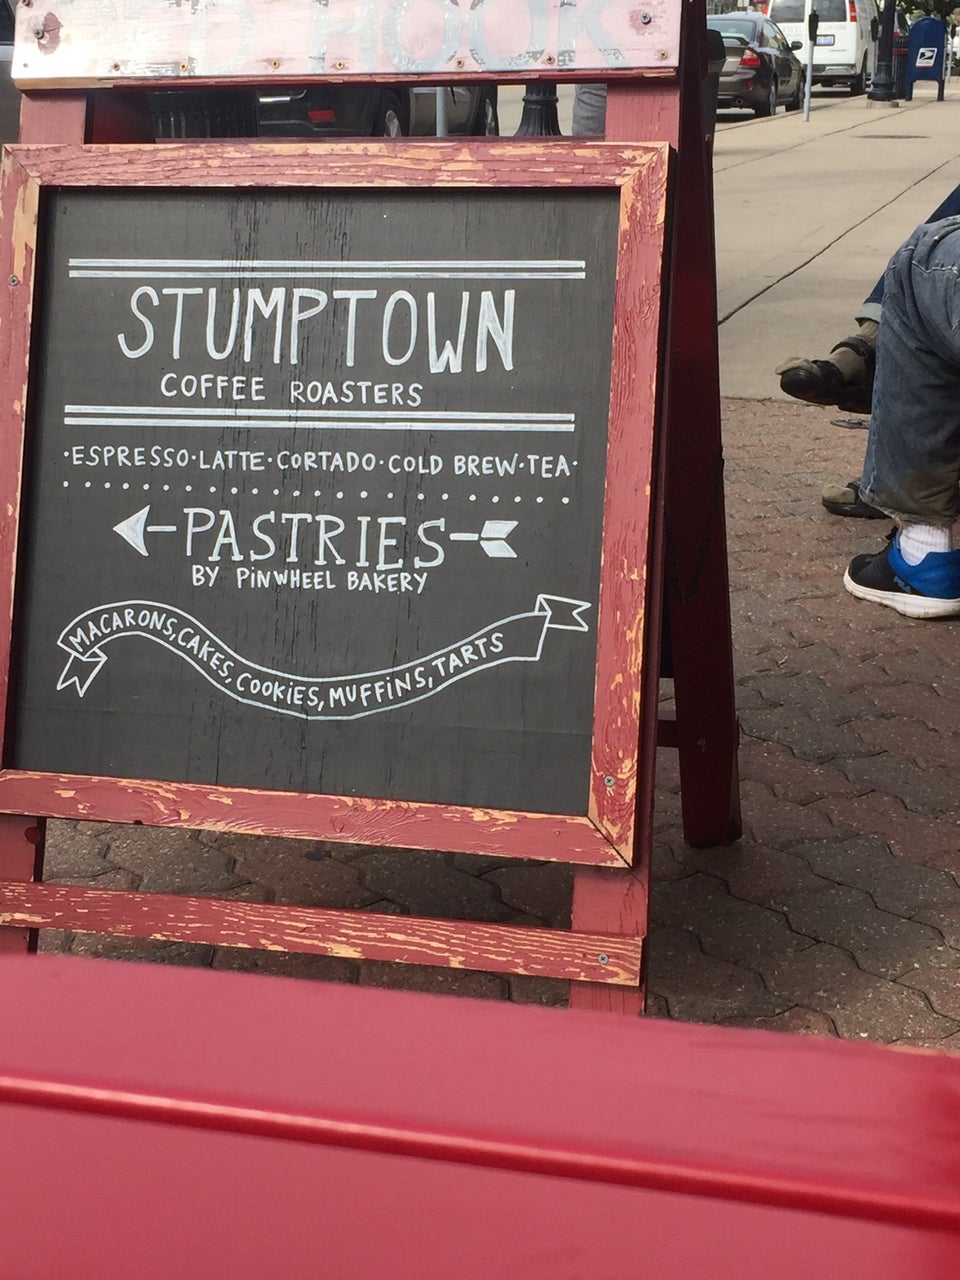 HOOK
STUMPTOWN
COFFEE ROASTERS
·ESPRESSO·LATTE·CORTADO·COLD BREW·TEA·
PASTRIES
BY PINWHEEL BAKERY
MACARONS, CAKES, COOKIES, MUFFINS, TARTS